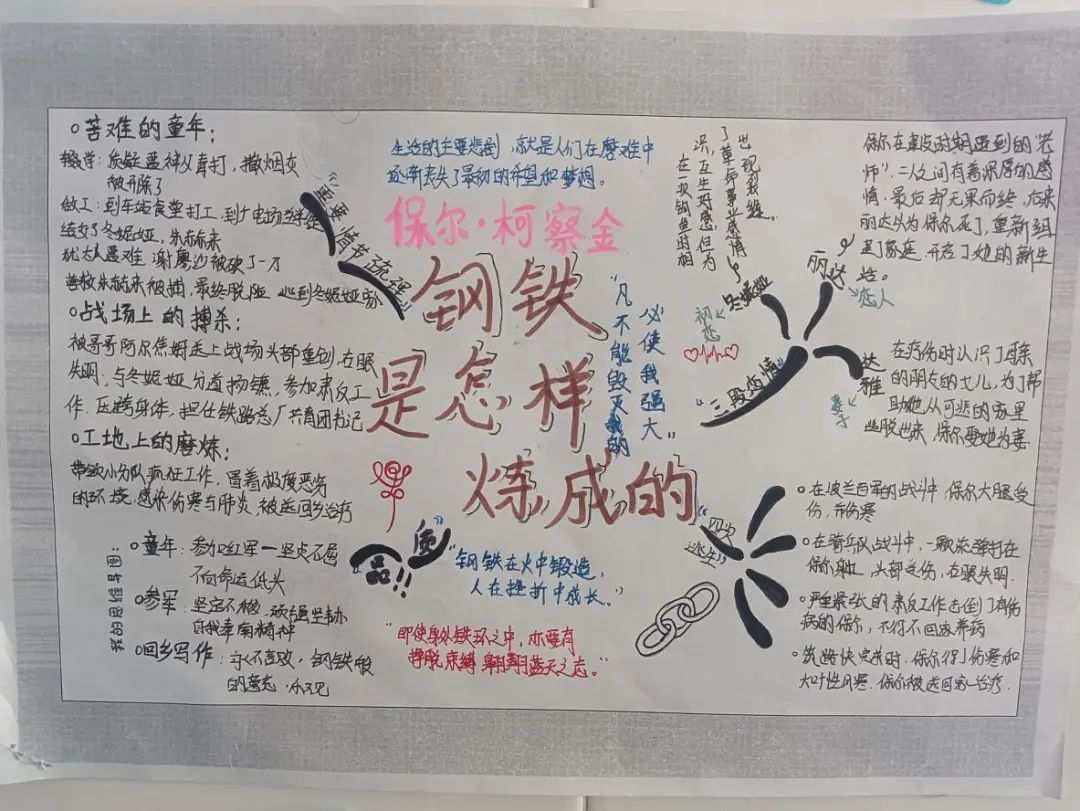 苦难的童年：
辍学：质疑遭神父毒打，撒烟灰
被开除了
做工：到车站食堂打工，到发电场当
结识了冬妮娅，朱赫来
犹太人遭难，谢廖沙被砍了一刀
营救朱赫来被捕，最终脱险，逃到冬妮娅家
战场上的搏杀：
被哥哥阿尔焦姆 走上战场头部重创，右眼
失明，与冬妮娅分道扬镳，参加肃反工
作，压跨身体，担任铁路总厂共青团书记
工地上的磨炼：
带领小分队疯狂工作，冒着极度恶劣
的环境，感染伤寒与肺炎，被送回乡治疗
我的思维导图：
童年：参加红军一坚贞不屈
不向命运低头
参军：坚定不移，顽强坚韧
自我牺牲精神
回乡写作：永不言败，钢铁般
的意志，乐观
"重要情节梳理"
生活的主要悲剧，就是人们在磨难中
逐渐丧失了最初的希望和梦想。
保尔·柯察金
钢铁
是怎样
炼成的
"凡不能毁灭我的
必使我强大"
品质
"钢铁在火中锻造，
人在挫折中成长。"
"即使身处铁环之中，亦要有
挣脱束缚 翱翔蓝天之态。"
"三段爱情"
在一次钓鱼时相
识，互生好感，但为
了革命事业感情
出现裂缝。
冬妮娅
初恋
丽达
恋人
保尔在 时期遇到的"老
师"，二人之间有着深厚的感
情，最后却无果而终，后来
丽达以为保尔死了，重新组
建了家庭，开启了她的新生
活。
达雅
妻子
在疗伤时认识了母亲
的朋友的女儿，为了帮
助她从可悲的家里
逃脱出来，保尔娶她为妻。
"四次
逃生"
在波兰白军的战斗中，保尔大腿受
伤，有伤寒
在骑兵队战斗中，一颗流弹打在
保尔身边，头部受伤，右眼失明。
严重紧张的肃反工作击倒了有伤
病的保尔，不得不回家养病
筑路快完成时，保尔得了伤寒和
大叶性风寒，保尔被送回家治疗。